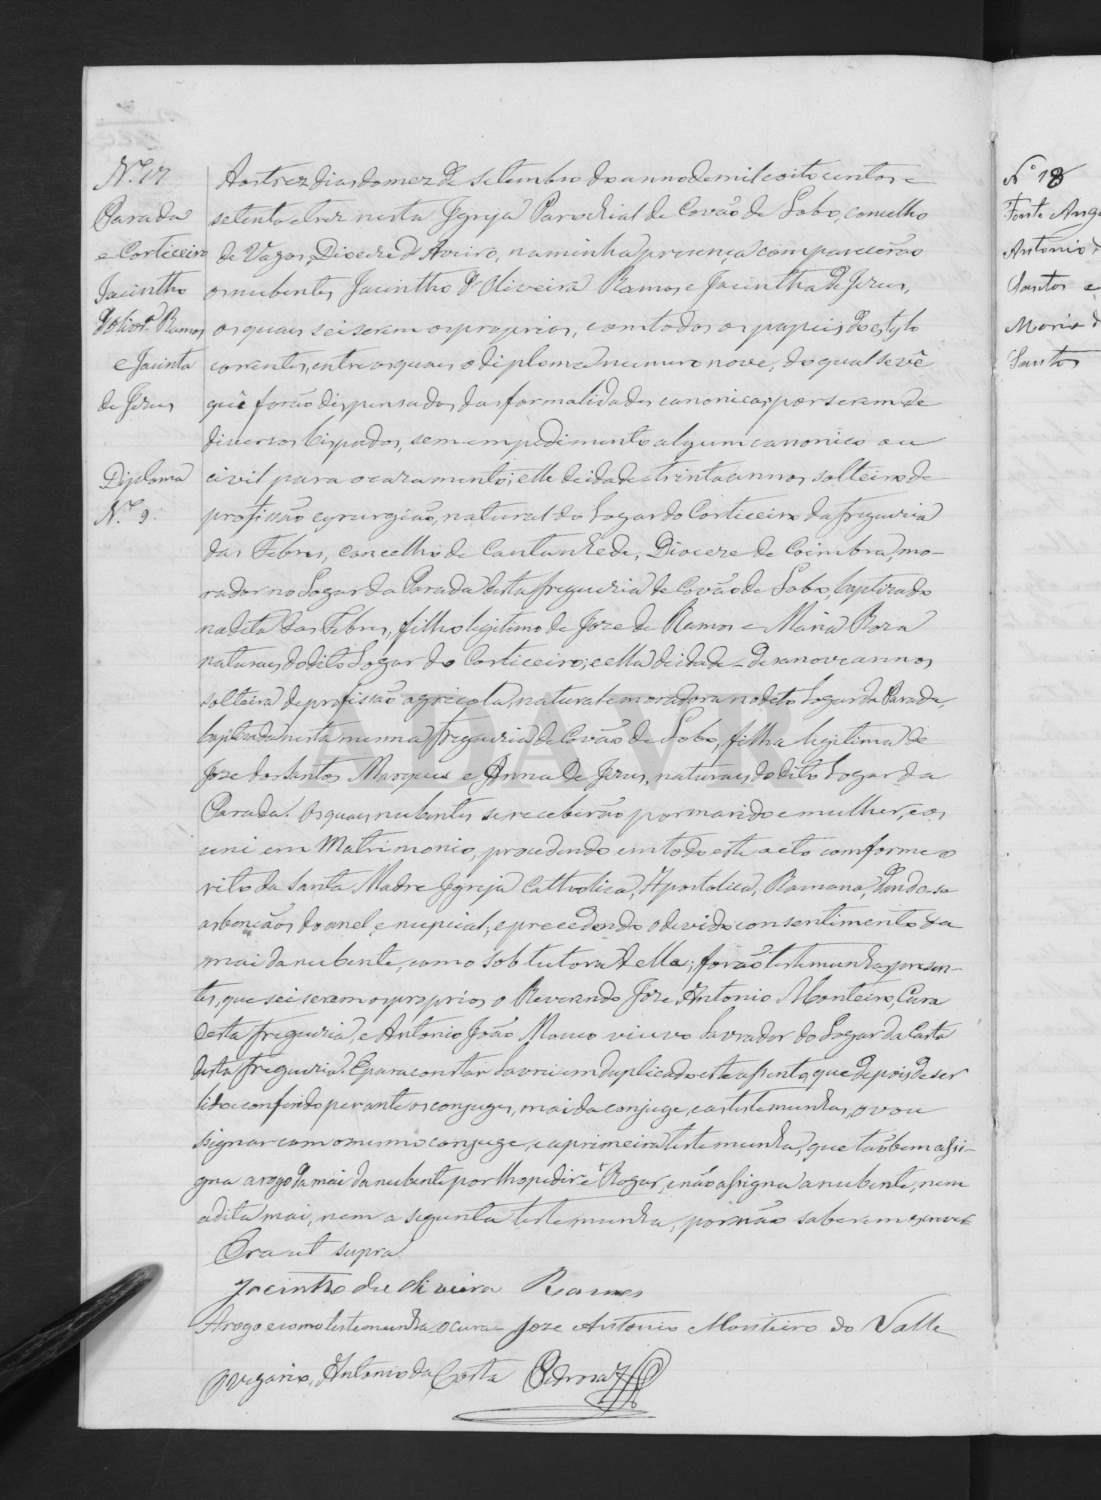 N.º 17
Parada
e Corticeiro
Jacintho
d'Olivr.ª Ramos
e Jacinta
de Jezus
Diploma
N.º 9.
Aos trez dias do mez de setembro do anno de mil oito centos e
setenta e trez nesta Igreja Parochial de Covão de Lobo, concelho
de Vagos, Diocese d'Aveiro, na minha presença comparecerão
os nubentes Jacintho d'Oliveira Ramos e Jacintha de Jezus,
os quaes sei serem os proprios, com todos os papeis do estylo
correntes, entre os quaes o diploma numero nove, do qual se vê
que forão dispensados das formalidades canonicas, por serem de
diversos bispados, sem empedimento algum canonico ou
civil para o cazamento; elle de idade trinta annos, solteiro de
profissão cyrurgião, natural do Logar do Corticeiro da freguezia
das Febres, concelho de Cantanhede, Diocese de Coimbra, mo-
rador no Logar da Parada desta freguezia de Covão de Lobo, baptizado
na dita das Febres, filho legitimo de Joze de Ramos e Maria Roza
naturaes do dito Logar do Corticeiro; e ella de idade dezanove annos
solteira de profissão agricola, natural e moradora no dito Logar da Parada,
baptizada nesta mesma freguezia de Covão de Lobo, filha legitima de
Joze dos Santos Marques e Anna de Jezus, naturaes do dito Logar da
Parada. Os quaes nubentes se receberão por marido e mulher, e os
uni em Matrimonio, procedendo em todo este acto comforme o
rito da Santa Madre Igreja Catholica, Apostolica, Romana,
as bençãos do anel e nupcial; e precedendo o devido consentimento da
mai da nubente, como tutora della; forão testemunhas presen-
tes, que sei serem os proprios o Reverendo Joze Antonio Monteiro, Cura
desta freguezia, e Antonio João Mouco viuvo lavrador do Logar da
desta freguezia. E para constar lavrei em duplicado este assento, que depois de ser
lido e conferido perante os conjuges, mai da conjuge, e as testemunhas, o vou
assignar com o mesmo conjuge, e a primeira testemunha, que tãobem assi-
gna a rogo da mai da nubente por lho pedir e Rogar, e não assigna a nubente, nem
a dita mai, nem a segunta testemunha, por não saberem escrever
Era ut supra
Jacintho de Oliveira Ramos
A rogo e como testemunha o cura Joze Antonio Monteiro do Valle
O Vigario, Antonio da Costa
ADAVR
Nº 18
Fonte Ang
Antonio d
Santos e
Maria d
Santos